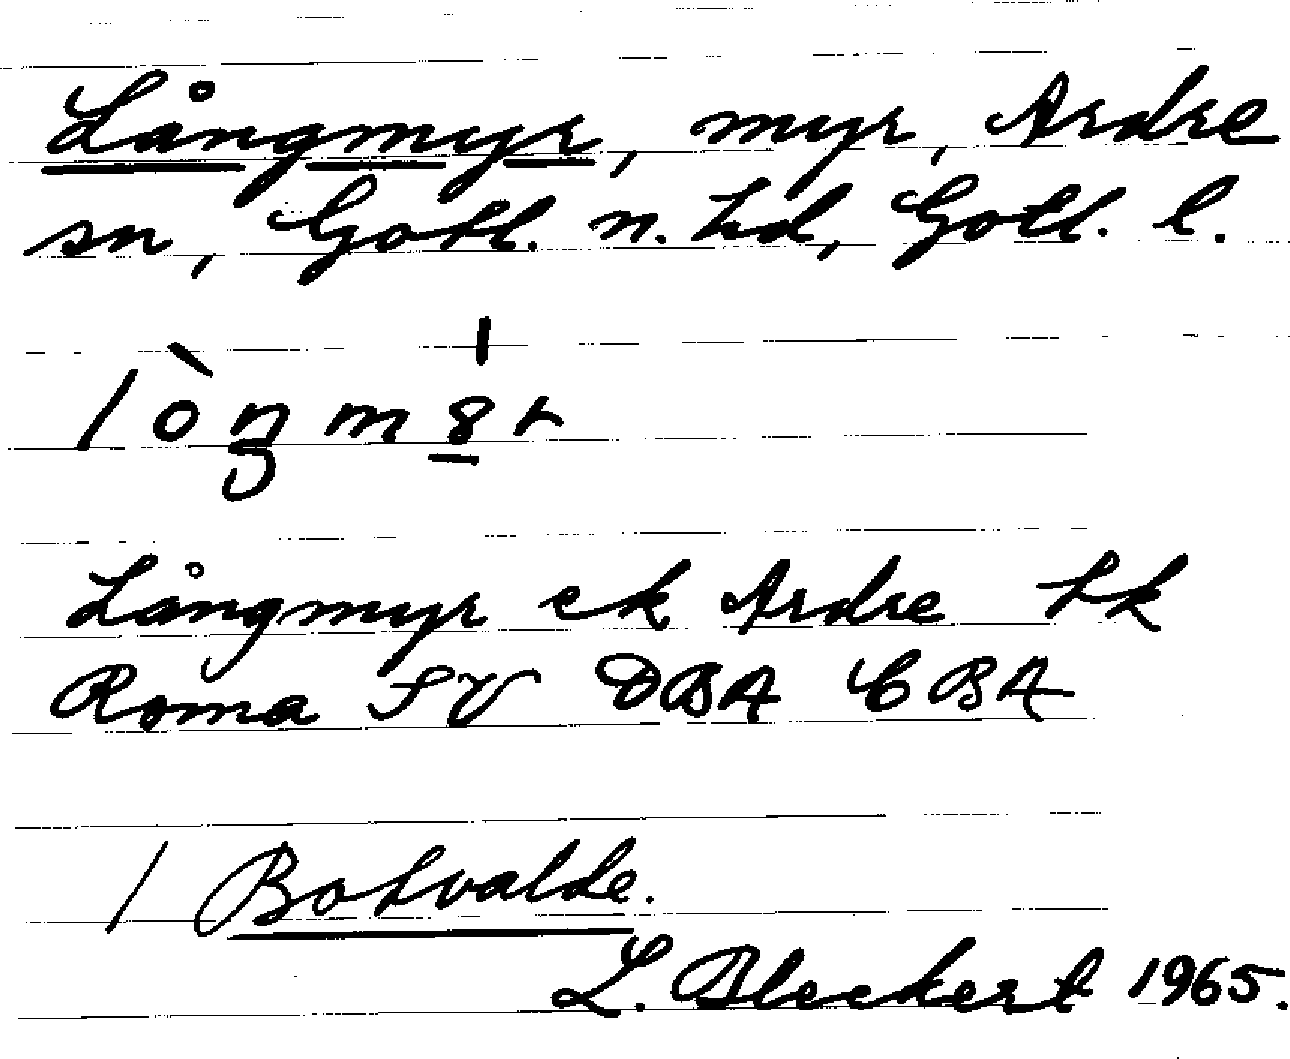 Långmyr, myr, Ardre
sn, Gotl. n. hd, Gotl. l.
Långmyr ek Ardre hk
Roma SV DBA CBA
/ Botvalde.
L. Bleckert 1965.